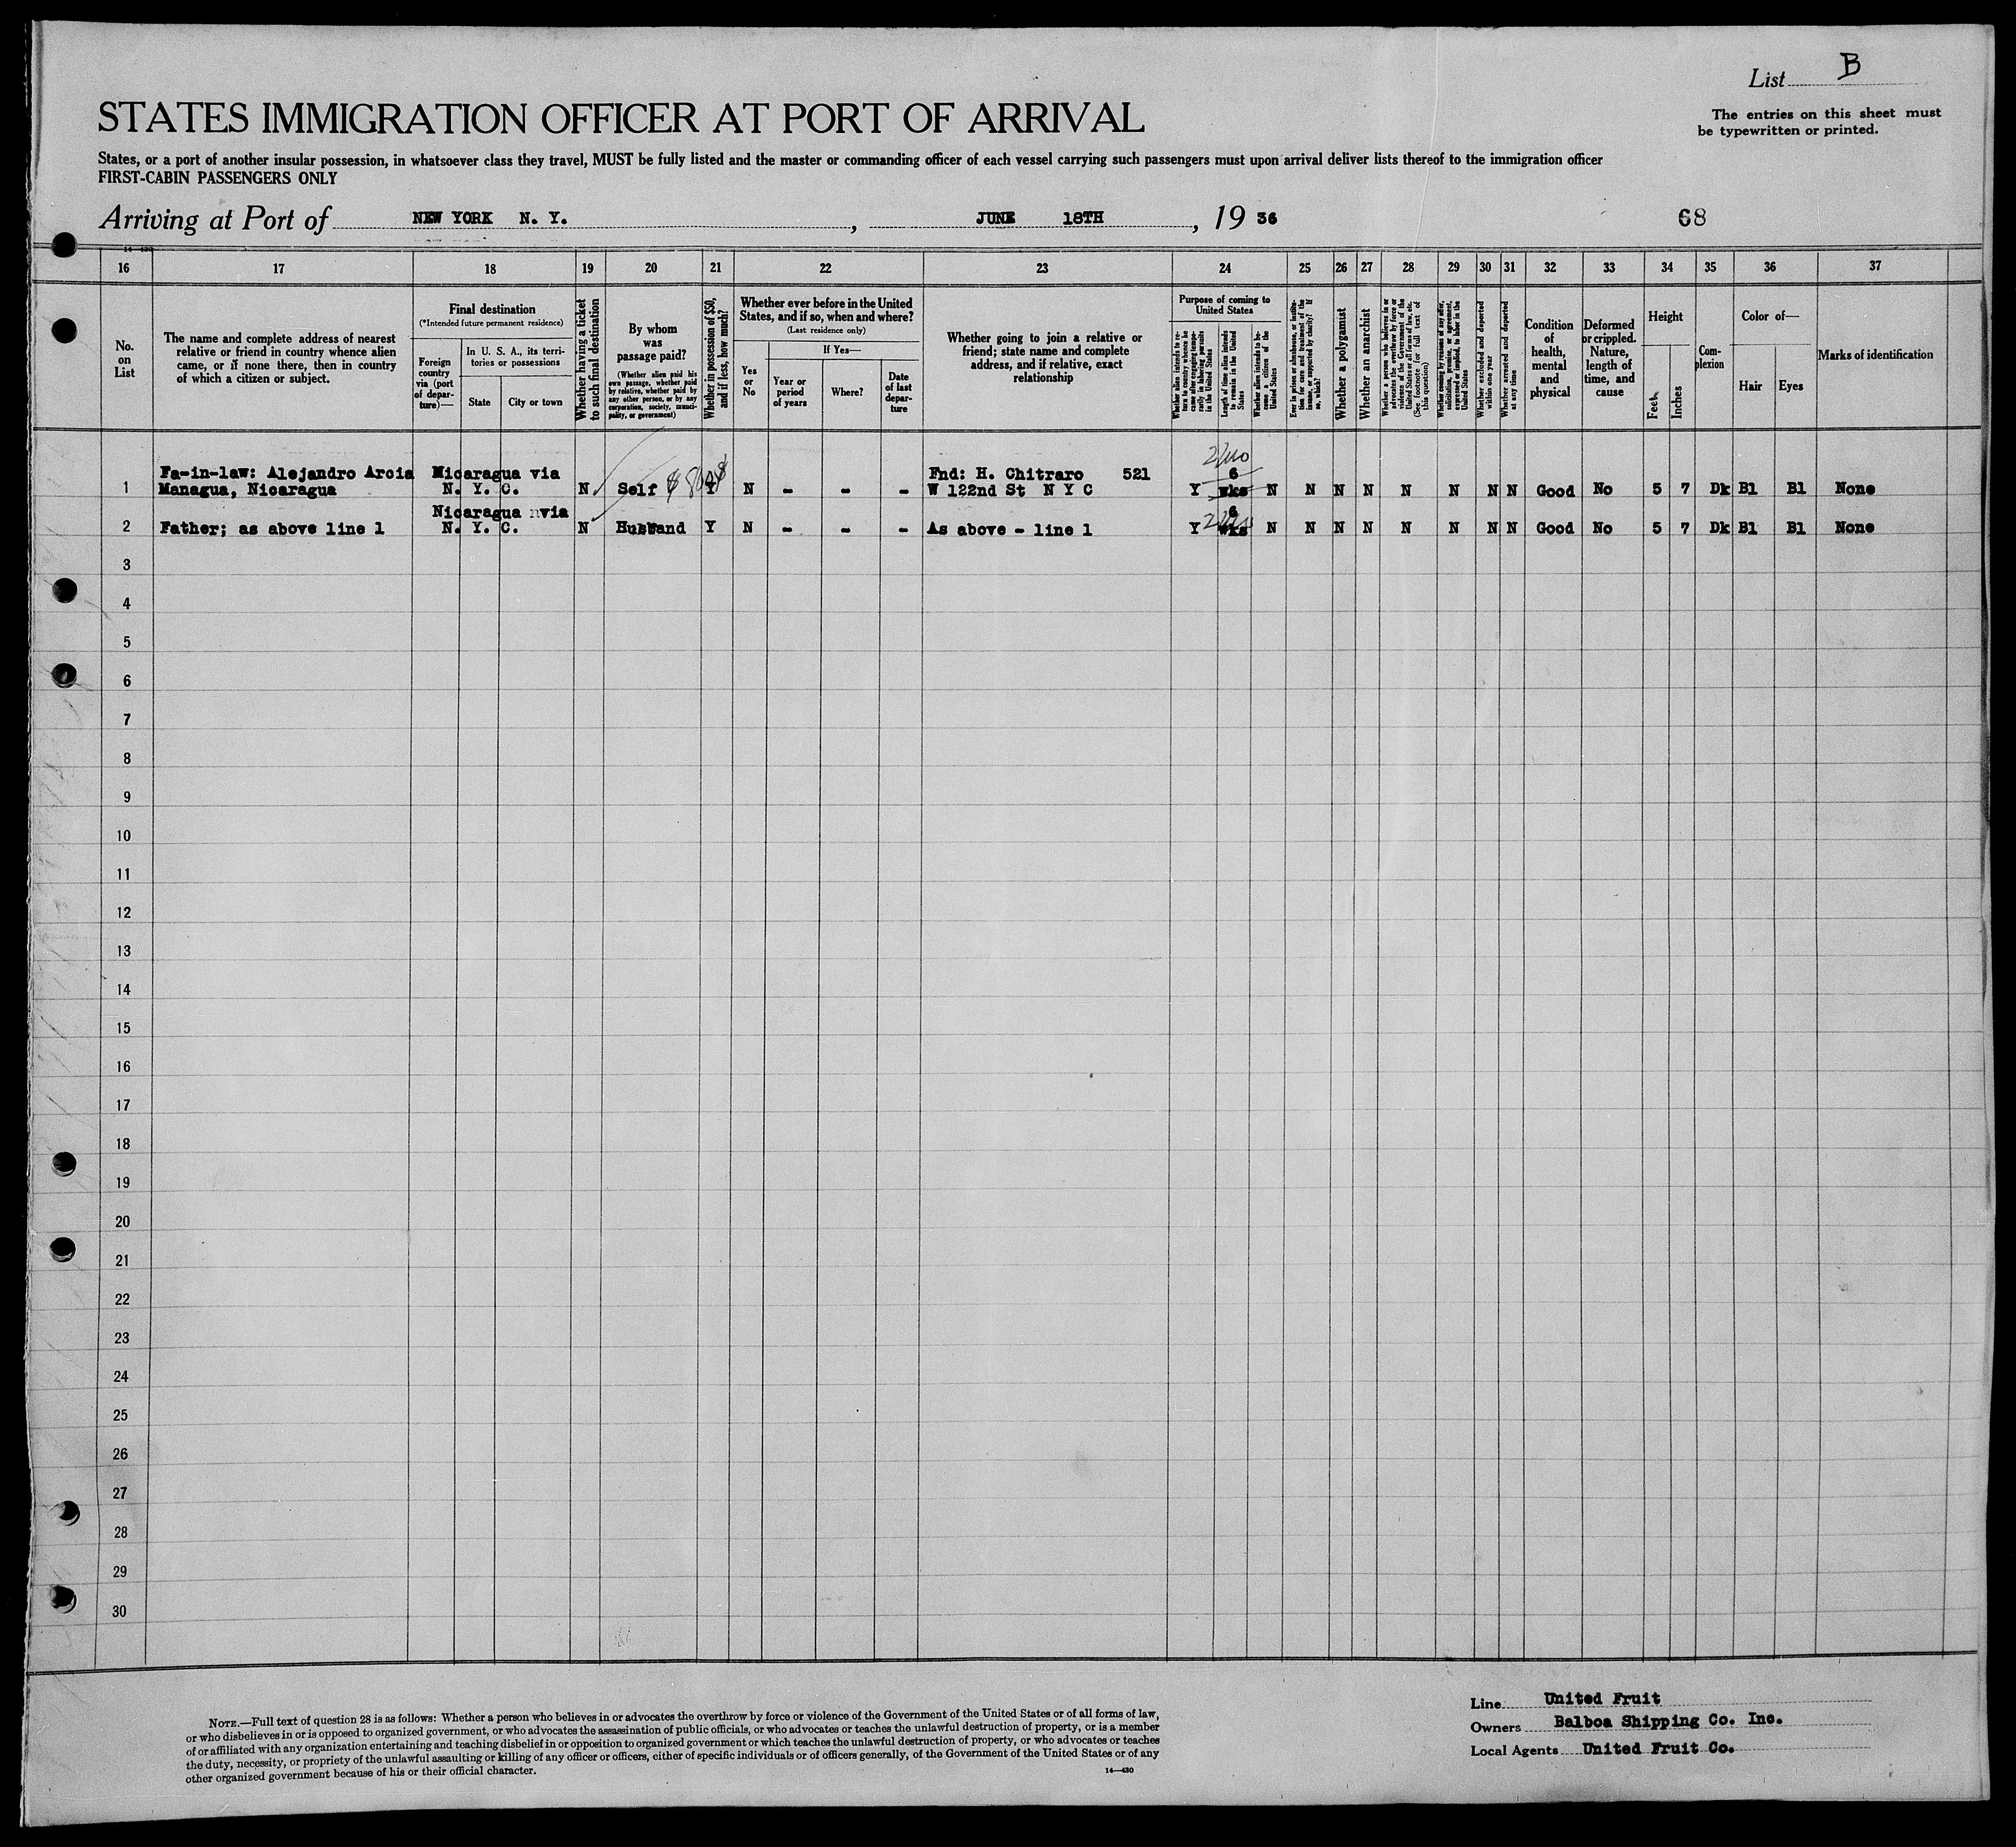 List B
The entries on this sheet must
be typewritten or printed.
STATES IMMIGRATION OFFICER AT PORT OF ARRIVAL
States, or a port of another insular possession, in whatsoever class they travel, MUST be fully listed and the master or commanding officer of each vessel carrying such passengers must upon arrival deliver lists thereof to the immigration officer
FIRST-CABIN PASSENGERS ONLY
Arriving at Port of NEW YORK N. Y. , JUNE 18TH , 19 36
68
16 17 18 19 20 21 22 23 24 25 26 27 28 29 30 31 32 33 34 35 36 37
No.
on
List
The name and complete address of nearest
relative or friend in country whence alien
came, or if none there, then in country
of which a citizen or subject.
Final destination
(*Intended future permanent residence)
Foreign
country
via (port
of depar-
ture)—
In U. S. A., its terri-
tories or possessions
State
City or town
Whether having a ticket
to such final destination
By whom
was
passage paid?
(Whether alien paid his
own passage, whether paid
by relative, whether paid by
any other person, or by any
corporation, society, munici-
pality, or government)
Whether in possession of $50,
and if less, how much?
Whether ever before in the United
States, and if so, when and where?
(Last residence only)
Yes
or
No
If Yes—
Year or
period
of years
Where?
Date
of last
depar-
ture
Whether going to join a relative or
friend; state name and complete
address, and if relative, exact
relationship
Purpose of coming to
United States
Whether alien intends to re-
turn to country whence he
came after engaging tempo-
rarily in laboring pursuits
in the United States
Length of time alien intends
to remain in the United
States
Whether alien intends to be-
come a citizen of the
United States
Ever in prison or almshouse, or institu-
tion for care and treatment of the
insane, or supported by charity? If
so, which?
Whether a polygamist
Whether an anarchist
Whether a person who believes in or
advocates the overthrow by force or
violence of the Government of the
United States or all forms of law, etc.
(See footnote for full text of
this question)
Whether coming by reason of any offer,
solicitation, promise, or agreement,
expressed or implied, to labor in the
United States
Whether excluded and deported
within one year
Whether arrested and deported
at any time
Condition
of
health,
mental
and
physical
Deformed
or crippled.
Nature,
length of
time, and
cause
Height
Feet
Inches
Com-
plexion
Color of—
Hair
Eyes
Marks of identification
2 mo
Fa-in-law: Alejandro Arcia Nicaragua via Fnd: H. Chitraro 521 6
1 Managua, Nicaragua N. Y. C. N Self Y N - - - W 122nd St N Y C Y wks N N N N N N N N Good No 5 7 Dk Bl Bl None
Nicaragua via 6
2 Father; as above line 1 N. Y. C. N Husband Y N - - - As above - line 1 Y wks N N N N N N N N Good No 5 7 Dk Bl Bl None
3
4
5
6
7
8
9
10
11
12
13
14
15
16
17
18
19
20
21
22
23
24
25
26
27
28
29
30
NOTE.—Full text of question 28 is as follows: Whether a person who believes in or advocates the overthrow by force or violence of the Government of the United States or of all forms of law,
or who disbelieves in or is opposed to organized government, or who advocates the assassination of public officials, or who advocates or teaches the unlawful destruction of property, or is a member
of or affiliated with any organization entertaining and teaching disbelief in or opposition to organized government or which teaches the unlawful destruction of property, or who advocates or teaches
the duty, necessity, or propriety of the unlawful assaulting or killing of any officer or officers, either of specific individuals or of officers generally, of the Government of the United States or of any
other organized government because of his or their official character.
14—430
Line United Fruit
Owners Balboa Shipping Co. Inc.
Local Agents United Fruit Co.